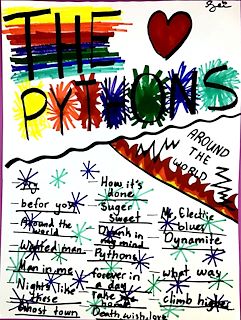 THE
PYTHONS
AROUND
THE
WORLD
befor you
Around the
world
Wanted man
Man in me
Nights like
these
Ghost town
How it's
done
Suger
Sweet
Drunk in
my mind
Pythons
forever in
a day
Take me
home
Death, wish, love
Mr. Electric
blues
Dynamite
what way
climb higher